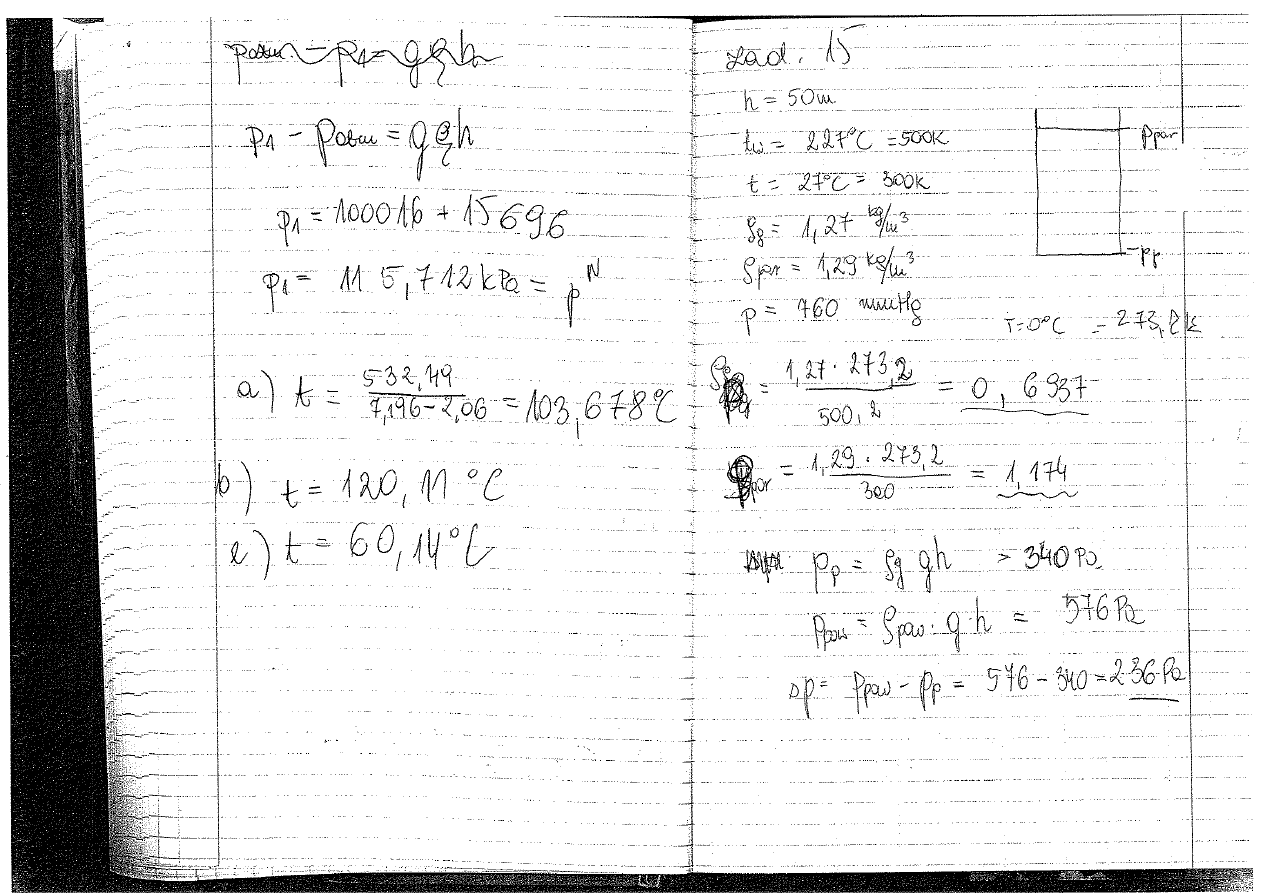 p1 - potocz = gρh
p1 = 100016 + 15696
p1 = 115,712 kPa = p^N
a) t = 532,49 / 7,196 - 2,06 = 103,678°C
b) t = 120,11 °C
c) t = 60,14°C
Zad. 15
h = 50m
tw = 227°C = 500K
t = 27°C = 300K
ρg = 1,27 kg/m³
ρpow = 1,29 kg/m³
p = 760 mmHg
ppow
pp
T=0°C = 273,2 K
ρg = 1,27 · 273,2 / 500,2 = 0,6937
ρpow = 1,29 · 273,2 / 300 = 1,174
pp = ρg gh > 340 Pa
ppow = ρpow · g · h = 576 Pa
Δp = ppow - pp = 576 - 340 = 236 Pa